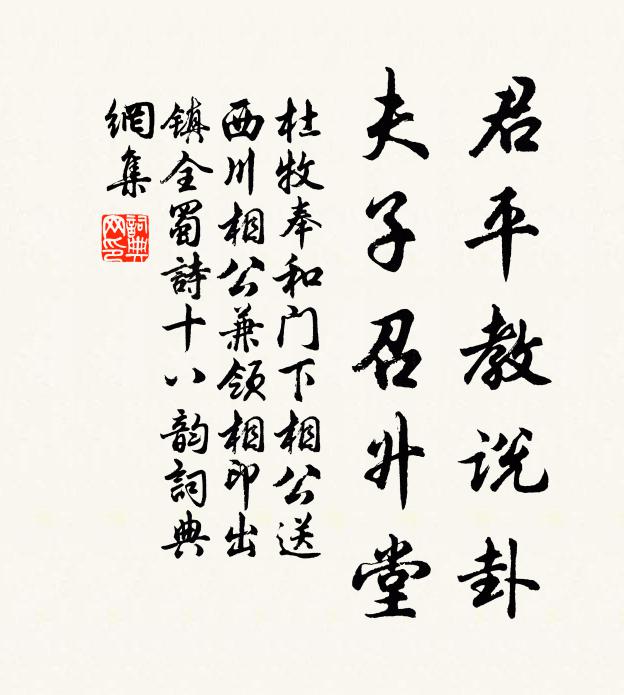 君平教说卦
夫子召升堂
杜牧奉和门下相公送
西川相公兼领相印出
镇全蜀詩十八韵詞典
網集
詞典
网印